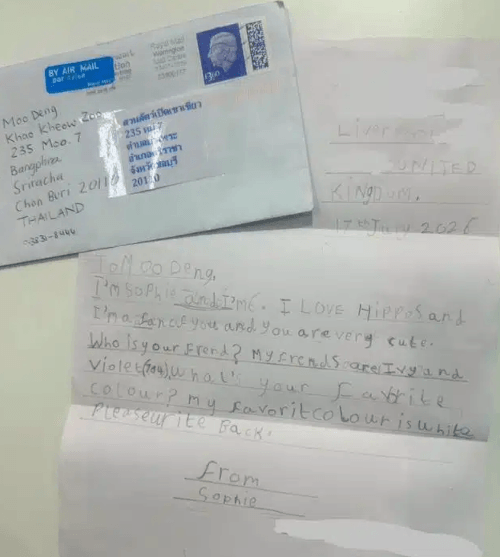 BY AIR MAIL
par avion
Royal Mail
Moo Deng
Khao Kheow Zoo
235 Moo. 7
Bangphra
Sriracha
Chon Buri 20110
THAILAND
สวนสัตว์เปิดเขาเขียว
235
จังหวัดชลบุรี
20110
UNITED
KINGDUM.
17th July
To Moo Deng,
I'm Sophie and I'm 6. I LOVE HiPPOS and
I'm a fan of you and you are very cute.
Who is your frend? My frends are Ivy and
Violet what's your favrite
colour? my favorit colour is white
Please urite Back.
from
Sophie